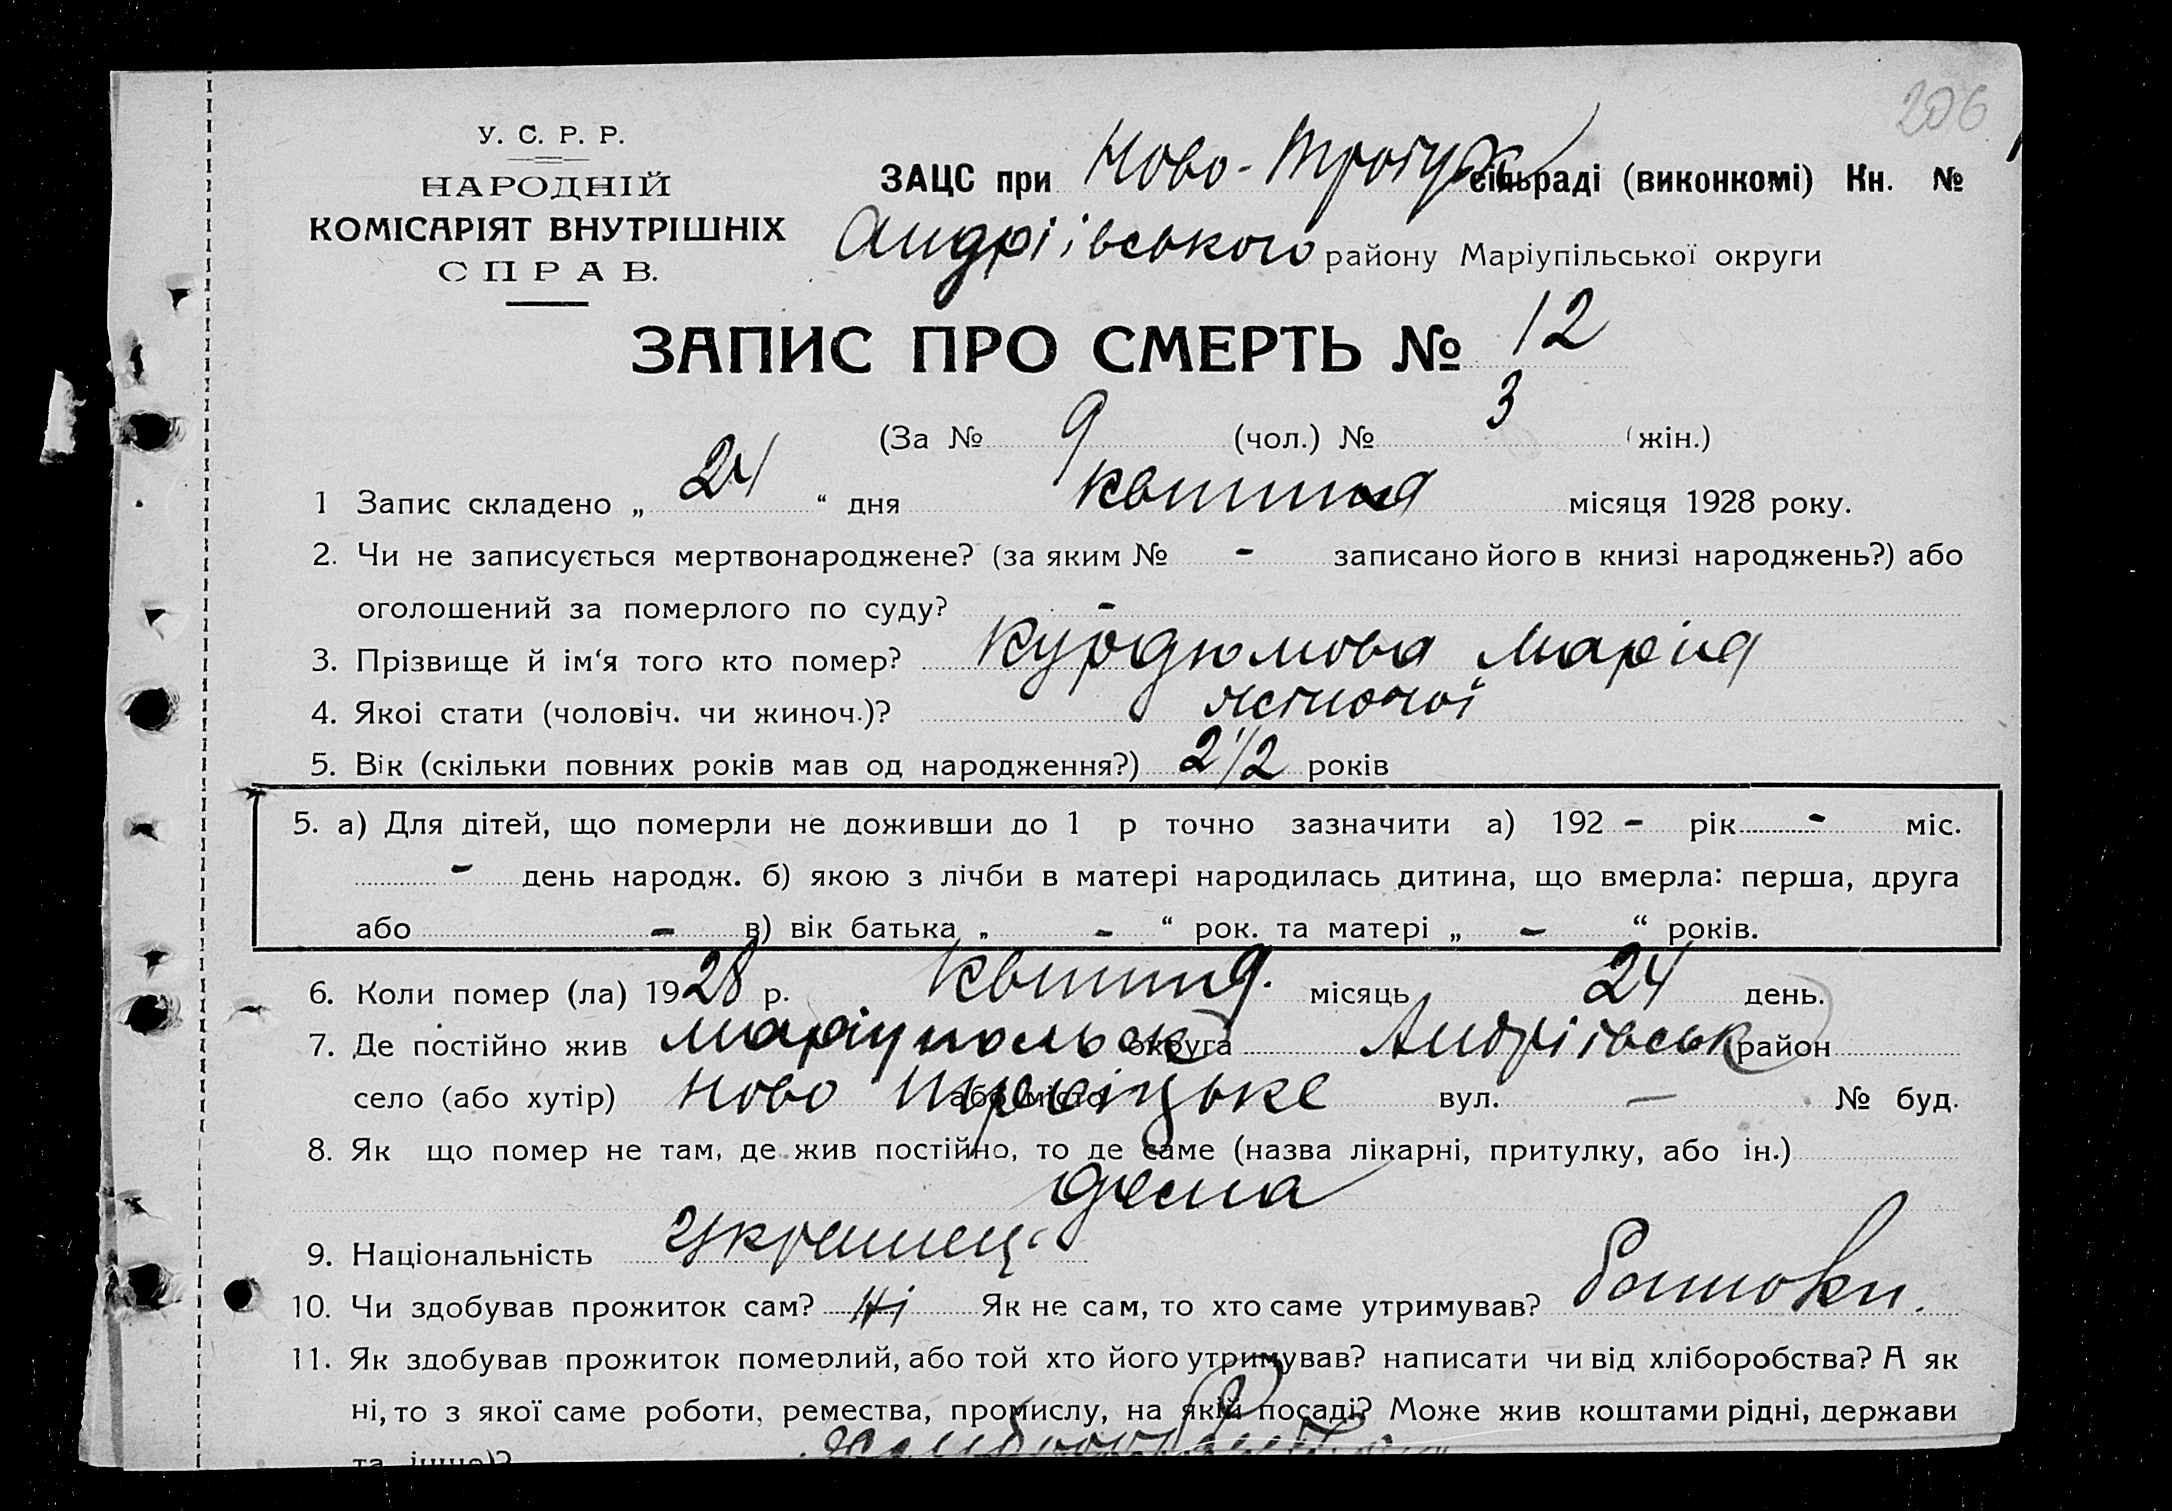 206
У. С. Р. Р.
НАРОДНІЙ
КОМІСАРІЯТ ВНУТРІШНІХ
СПРАВ.
ЗАЦС при Ново-Троїцьк сільраді (виконкомі) Кн. №
Андріївського району Маріупільської округи
ЗАПИС ПРО СМЕРТЬ № 12
(За № 9 (чол.) № 3 (жін.)
1 Запис складено „ 24 “ дня квітня місяця 1928 року.
2. Чи не записується мертвонароджене? (за яким № - записано його в книзі народжень?) або
оголошений за померлого по суду? -
3. Прізвище й ім‘я того кто помер? Курдюмова Марія
4. Якоі стати (чоловіч. чи жиноч.)? жіночої
5. Вік (скільки повних років мав од народження?) 2 1/2 років
5. а) Для дітей, що померли не доживши до 1 р точно зазначити а) 192 - рік - міс.
- день народж. б) якою з лічби в матері народилась дитина, що вмерла: перша, друга
або - в) вік батька „ - “ рок. та матері „ - “ років.
6. Коли помер (ла) 1928 р. квітня. місяць 24 день.
7. Де постійно жив Маріупольськ округа Андріївськ район
село (або хутір) Ново Троїцьке або місто вул. — № буд.
8. Як що помер не там, де жив постійно, то де саме (назва лікарні, притулку, або ін.)
дома
9. Національність Украинец.
10. Чи здобував прожиток сам? Ні Як не сам, то хто саме утримував? Батьки.
11. Як здобував прожиток померлий, або той хто його утримував? написати чи від хліборобства? А як
ні, то з якої саме роботи, ремества, промислу, на якій посаді? Може жив коштами рідні, держави
та інше)?